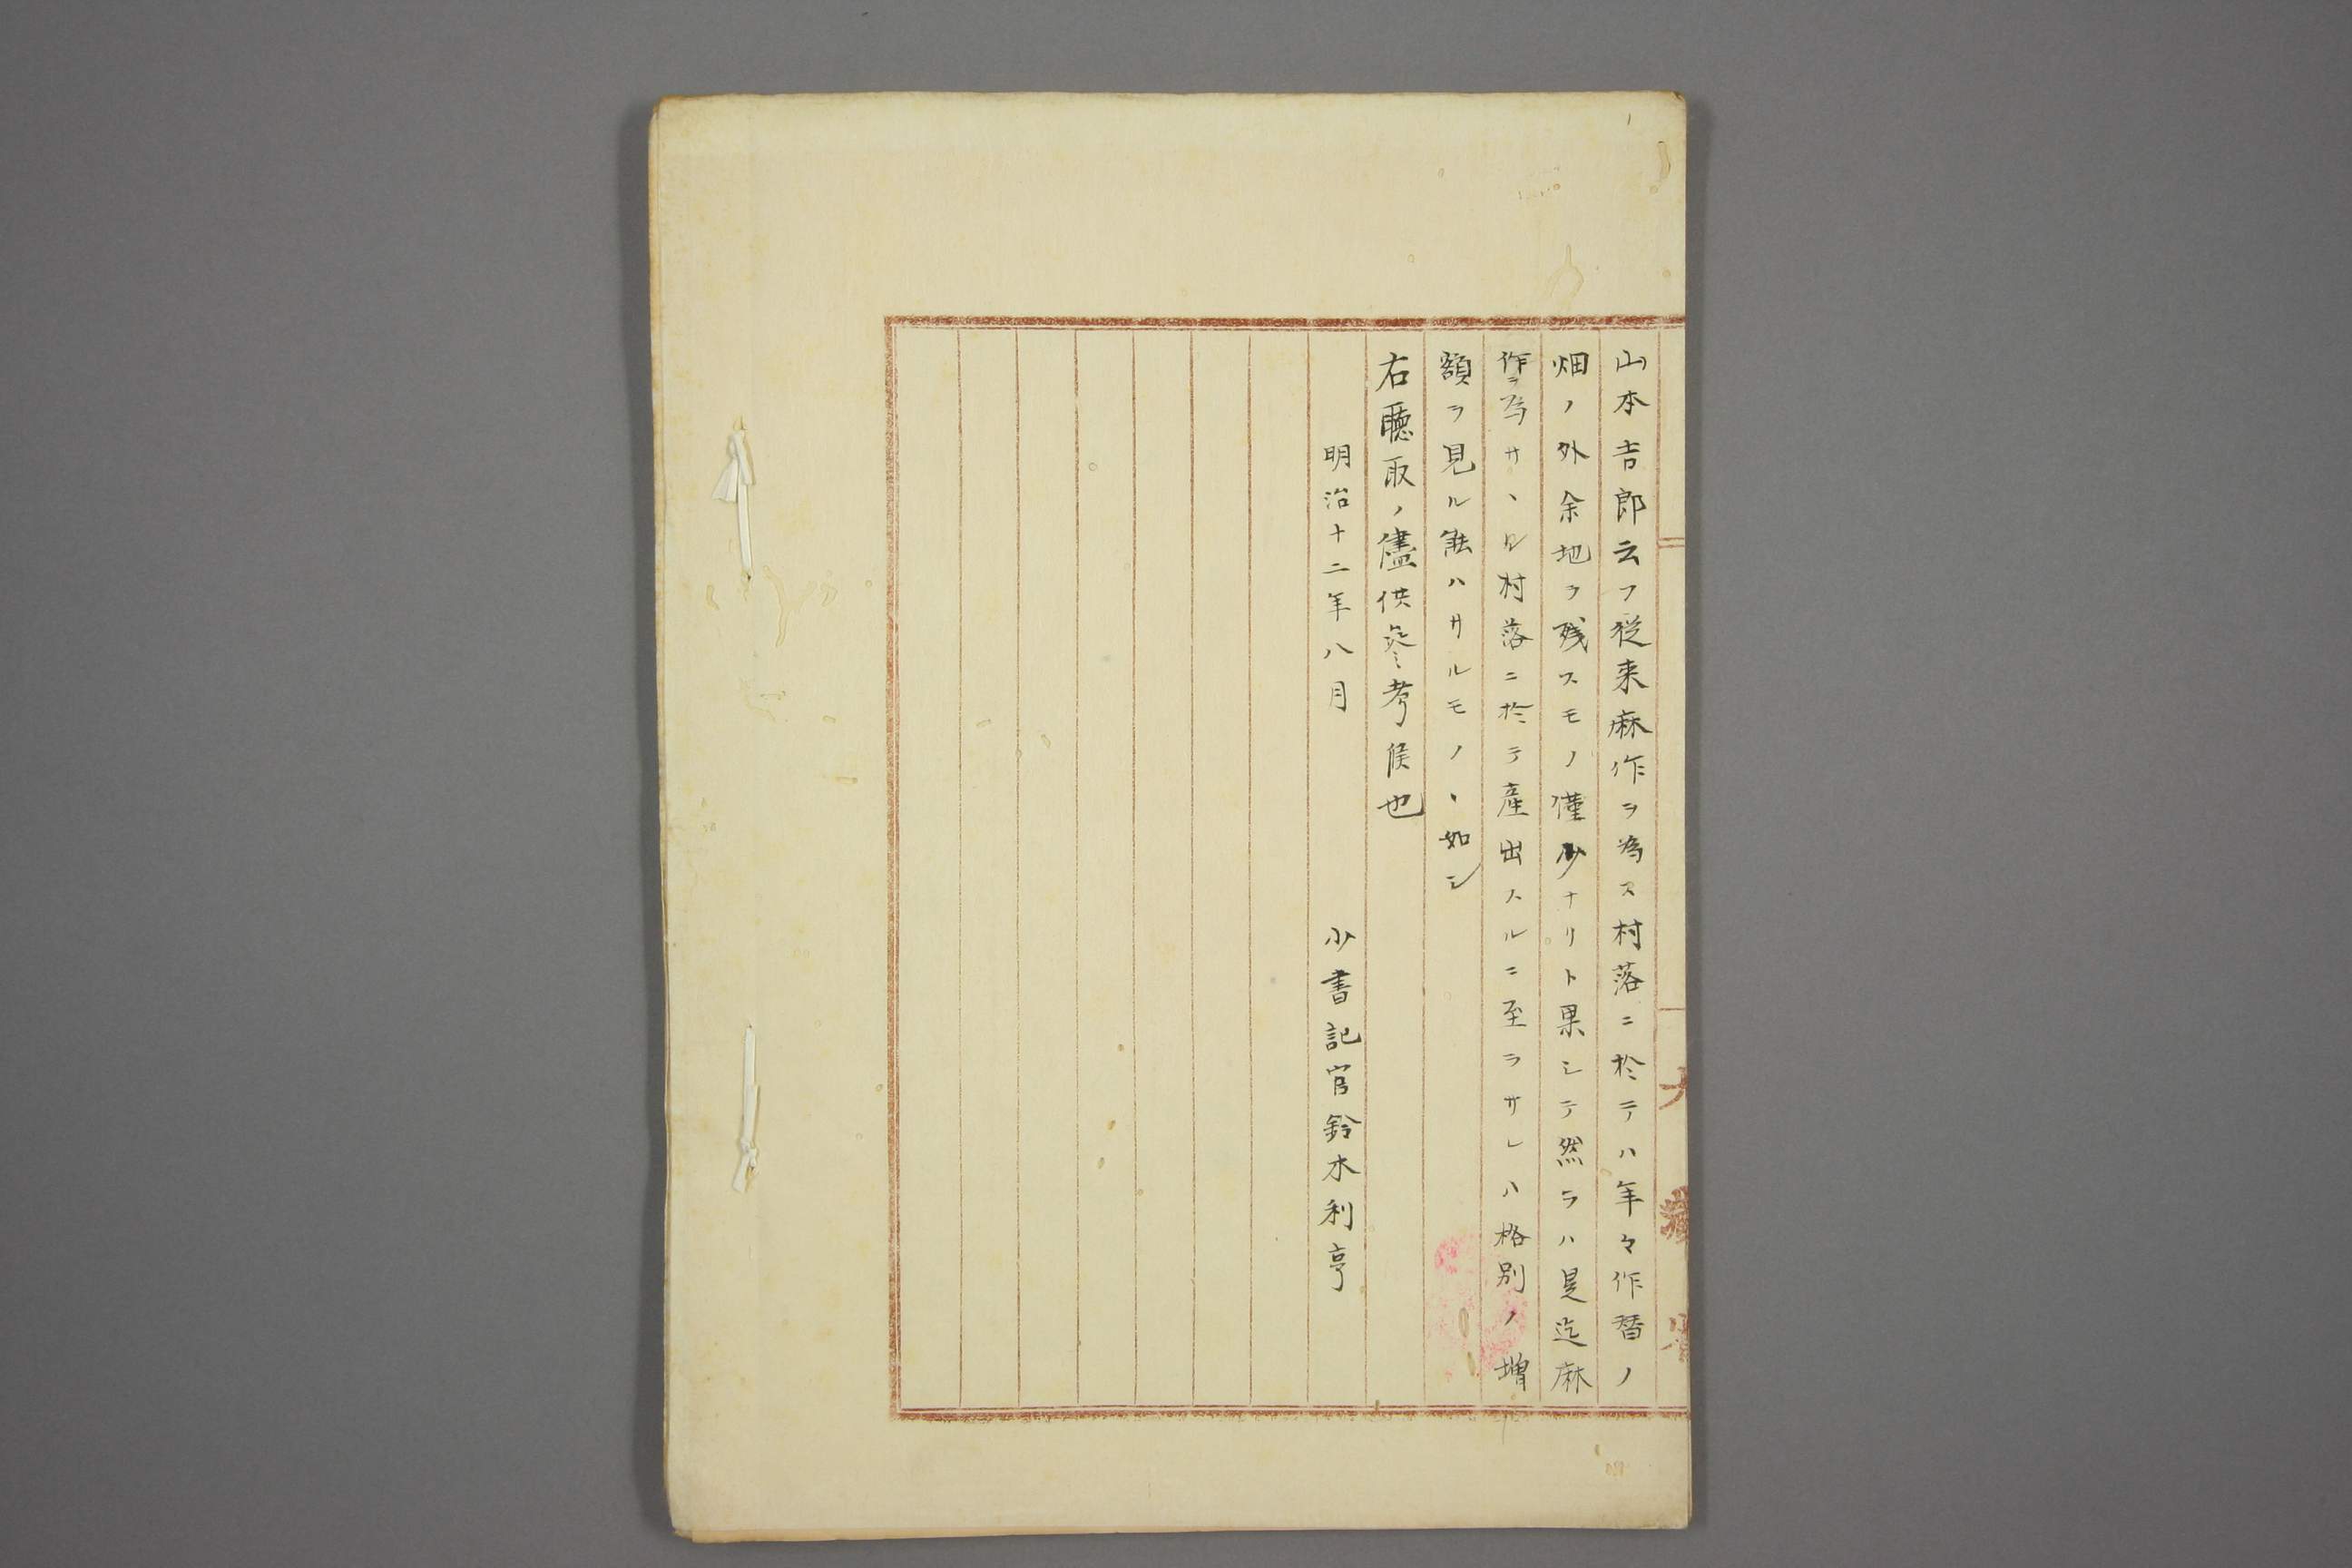 山本吉郎云フ従来麻作ヲ為ス村落ニ於テハ年々作替ノ
畑ノ外余地ヲ残スモノ僅少ナリト果シテ然ラハ是迄麻
作ヲ為サヽル村落ニ於テ産出スルニ至ラサレハ格別ノ増
額ヲ見ル能ハサルモノヽ如シ
右聴取ノ儘供參考候也
明治十二年八月
少書記官鈴木利亨